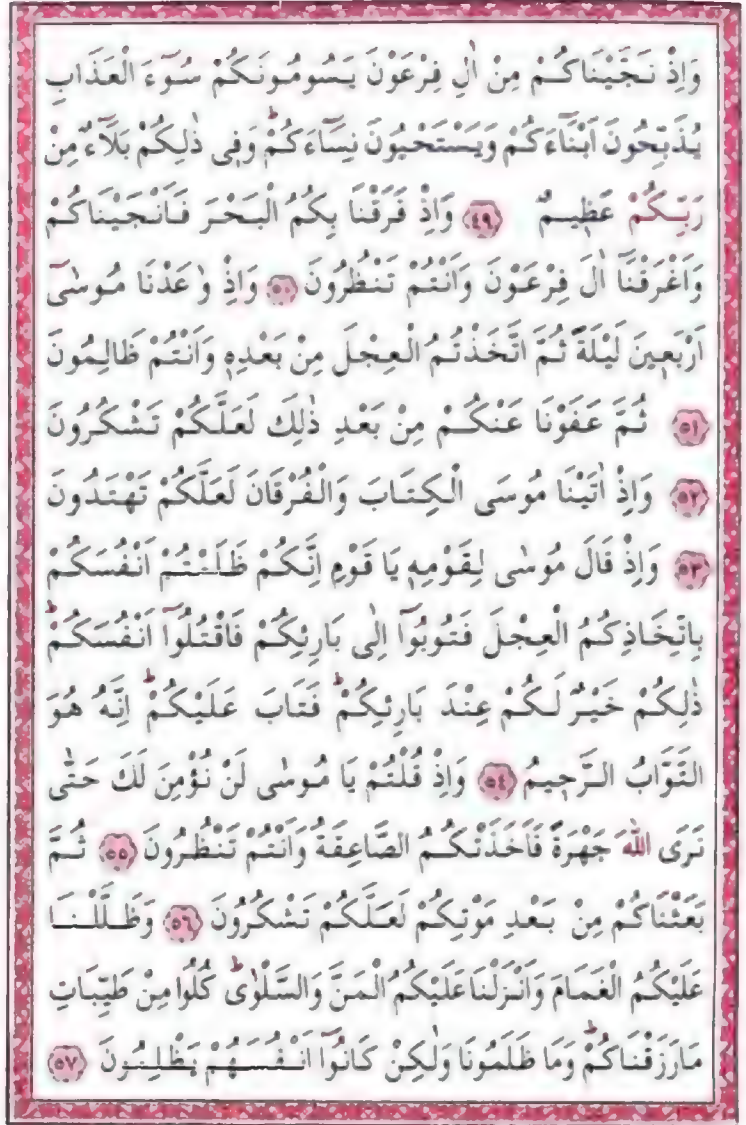 وَاِذْ نَجَّيْنَاكُمْ مِنْ اٰلِ فِرْعَوْنَ يَسُومُونَكُمْ سُٓوءَ الْعَذَابِ
يُذَبِّحُونَ اَبْنَٓاءَكُمْ وَيَسْتَحْيُونَ نِسَٓاءَكُمْۜ وَفٖى ذٰلِكُمْ بَلَٓاءٌ مِنْ
رَبِّكُمْ عَظٖيمٌ ﴿٤٩﴾ وَاِذْ فَرَقْنَا بِكُمُ الْبَحْرَ فَاَنْجَيْنَاكُمْ
وَاَغْرَقْنَٓا اٰلَ فِرْعَوْنَ وَاَنْتُمْ تَنْظُرُونَ ﴿٥٠﴾ وَاِذْ وٰعَدْنَا مُوسٰٓى
اَرْبَعٖينَ لَيْلَةً ثُمَّ اتَّخَذْتُمُ الْعِجْلَ مِنْ بَعْدِهٖ وَاَنْتُمْ ظَالِمُونَ
﴿٥١﴾ ثُمَّ عَفَوْنَا عَنْكُمْ مِنْ بَعْدِ ذٰلِكَ لَعَلَّكُمْ تَشْكُرُونَ
﴿٥٢﴾ وَاِذْ اٰتَيْنَا مُوسَى الْكِتَابَ وَالْفُرْقَانَ لَعَلَّكُمْ تَهْتَدُونَ
﴿٥٣﴾ وَاِذْ قَالَ مُوسٰى لِقَوْمِهٖ يَا قَوْمِ اِنَّكُمْ ظَلَمْتُمْ اَنْفُسَكُمْ
بِاتِّخَاذِكُمُ الْعِجْلَ فَتُوبُٓوا اِلٰى بَارِئِكُمْ فَاقْتُلُٓوا اَنْفُسَكُمْۜ
ذٰلِكُمْ خَيْرٌ لَكُمْ عِنْدَ بَارِئِكُمْۜ فَتَابَ عَلَيْكُمْۜ اِنَّهُ هُوَ
التَّوَّابُ الرَّحٖيمُ ﴿٥٤﴾ وَاِذْ قُلْتُمْ يَا مُوسٰى لَنْ نُؤْمِنَ لَكَ حَتّٰى
نَرَى اللّٰهَ جَهْرَةً فَاَخَذَتْكُمُ الصَّاعِقَةُ وَاَنْتُمْ تَنْظُرُونَ ﴿٥٥﴾ ثُمَّ
بَعَثْنَاكُمْ مِنْ بَعْدِ مَوْتِكُمْ لَعَلَّكُمْ تَشْكُرُونَ ﴿٥٦﴾ وَظَلَّلْنَا
عَلَيْكُمُ الْغَمَامَ وَاَنْزَلْنَا عَلَيْكُمُ الْمَنَّ وَالسَّلْوٰىۜ كُلُوا مِنْ طَيِّبَاتِ
مَا رَزَقْنَاكُمْۜ وَمَا ظَلَمُونَا وَلٰكِنْ كَانُٓوا اَنْفُسَهُمْ يَظْلِمُونَ ﴿٥٧﴾